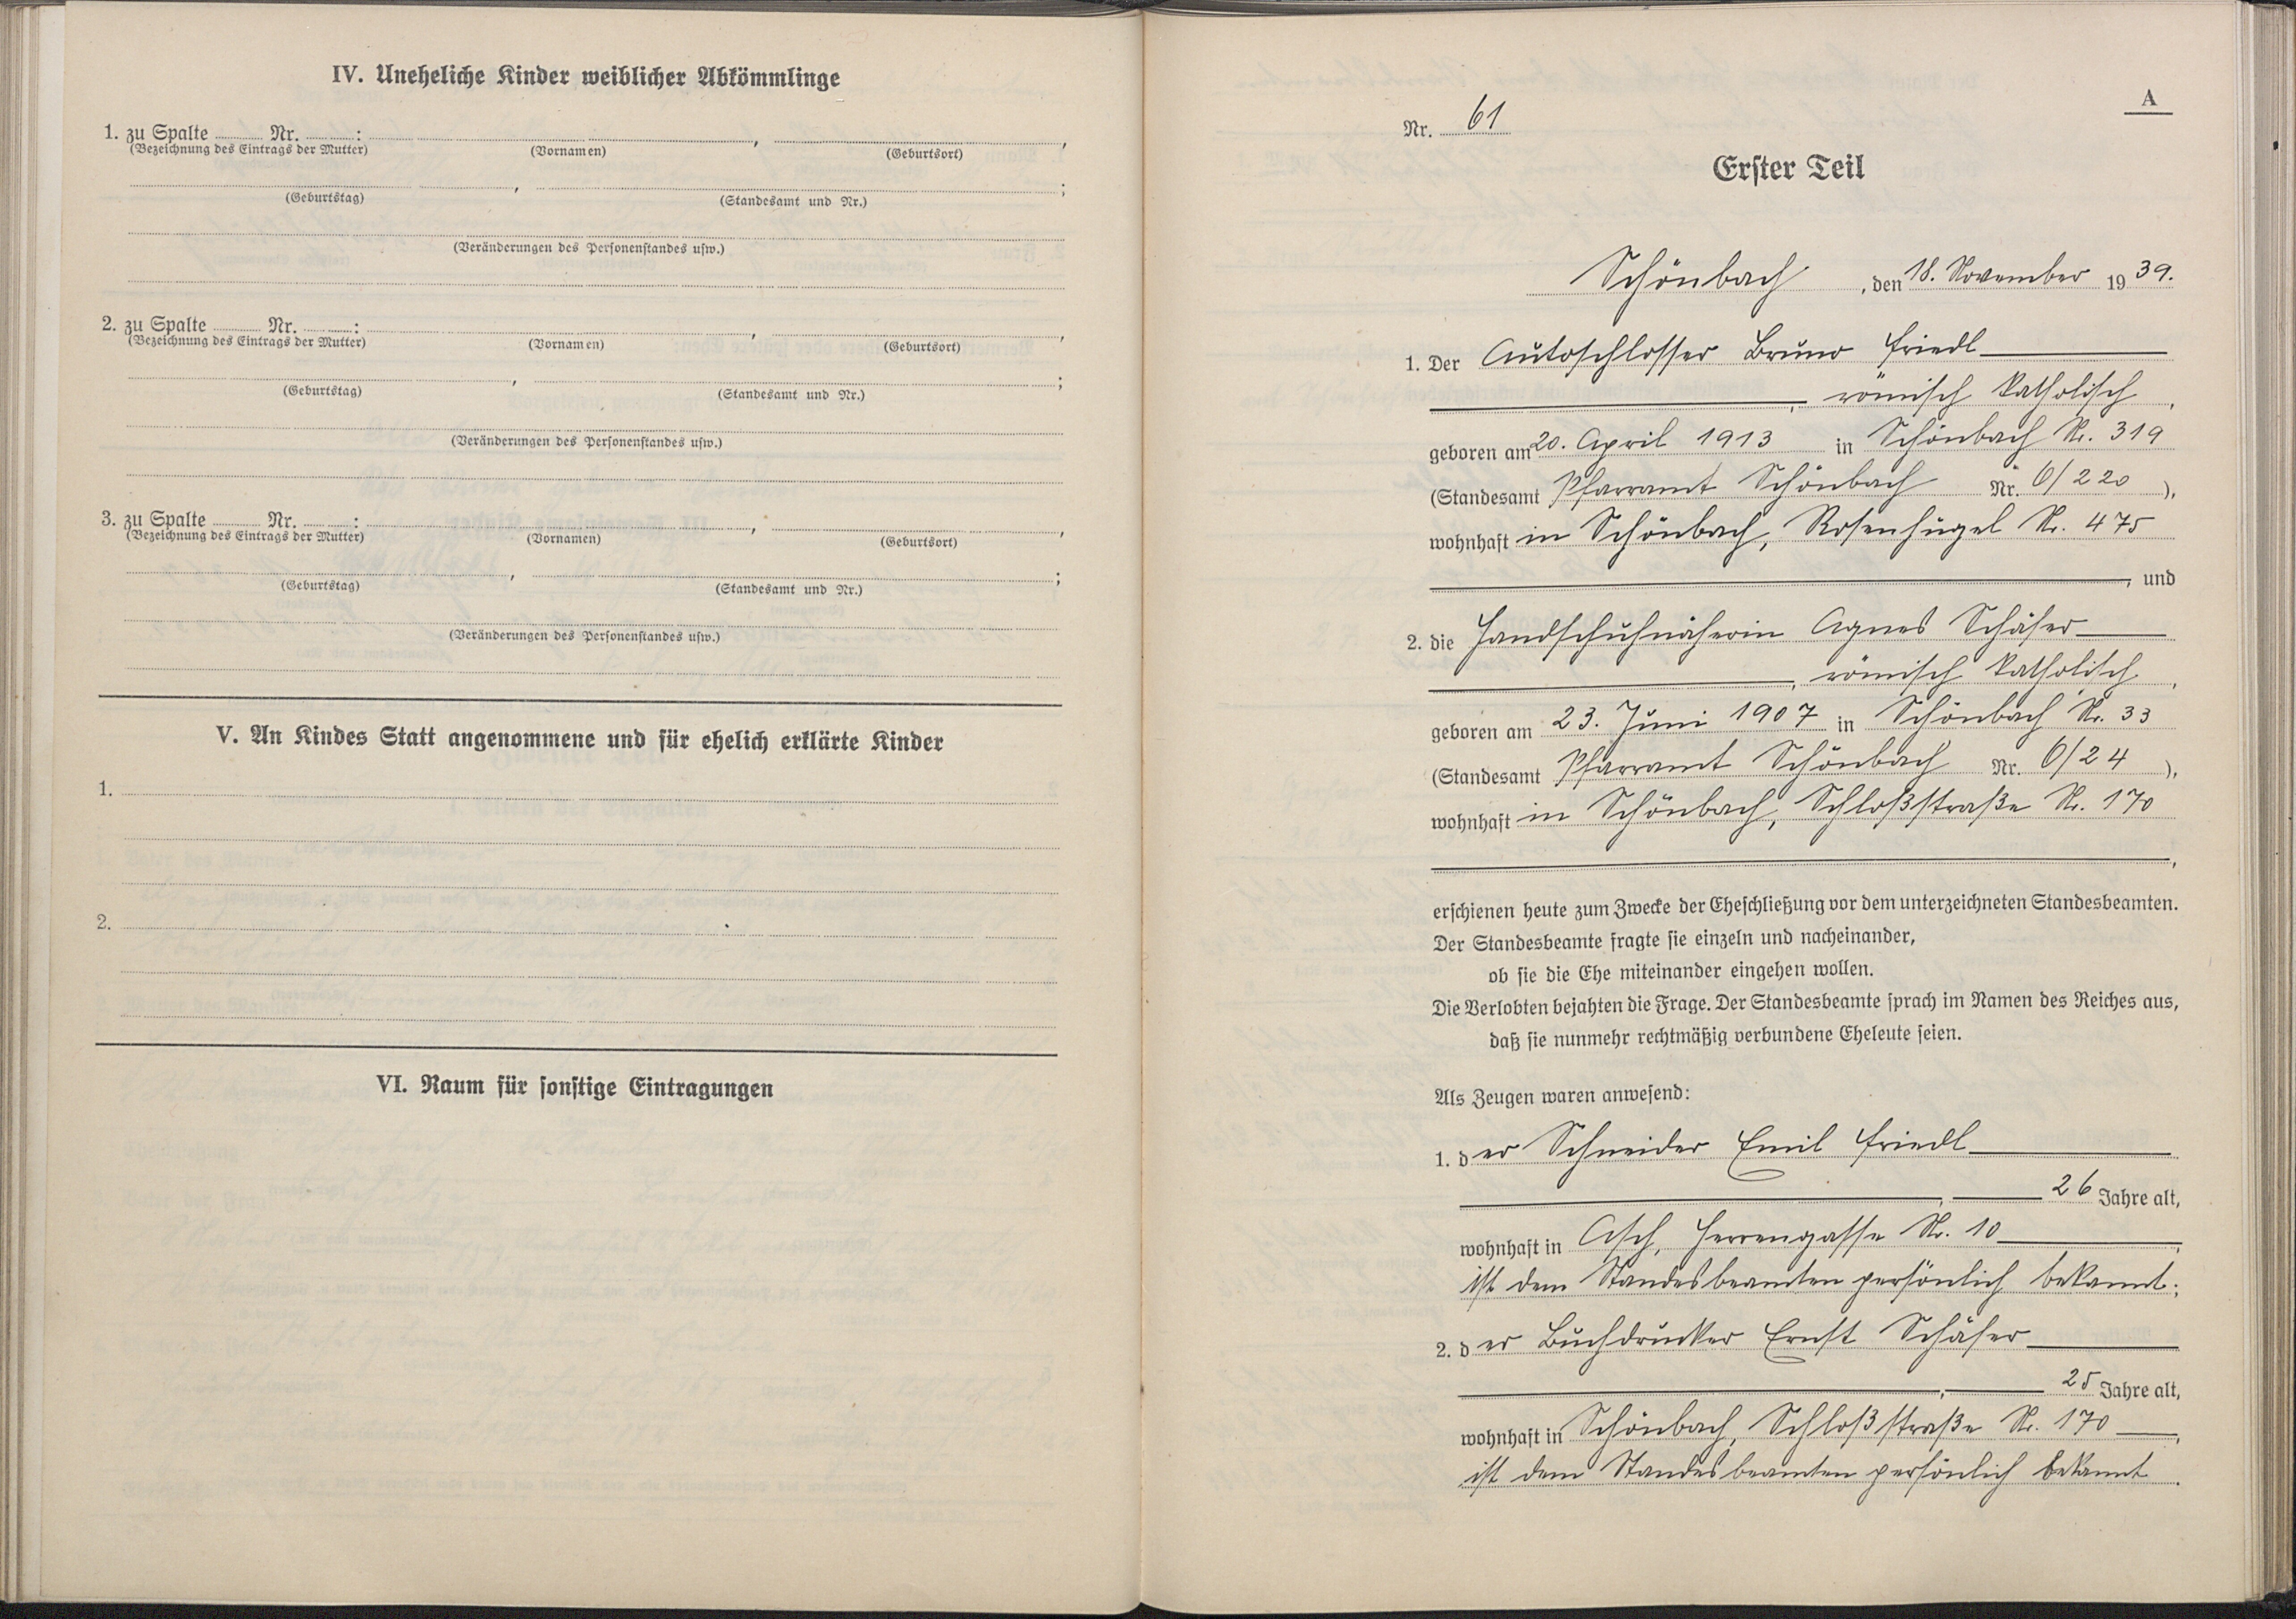 IV. Uneheliche Kinder weiblicher Abkömmlinge
1. zu Spalte Nr. : , ,
(Bezeichnung des Eintrags der Mutter) (Vornamen) (Geburtsort)
, ;
(Geburtstag) (Standesamt und Nr.)
(Veränderungen des Personenstandes usw.)
2. zu Spalte Nr. : , ,
(Bezeichnung des Eintrags der Mutter) (Vornamen) (Geburtsort)
, ;
(Geburtstag) (Standesamt und Nr.)
(Veränderungen des Personenstandes usw.)
3. zu Spalte Nr. : , ,
(Bezeichnung des Eintrags der Mutter) (Vornamen) (Geburtsort)
, ;
(Geburtstag) (Standesamt und Nr.)
(Veränderungen des Personenstandes usw.)
V. An Kindes Statt angenommene und für ehelich erklärte Kinder
1.
2.
VI. Raum für sonstige Eintragungen
A
Nr. 61
Erster Teil
Schönbach, den 18. November 1939.
1. Der Autoschlosser Bruno Friedl
, römisch katholisch,
geboren am 20. April 1913 in Schönbach Nr. 319
(Standesamt Pfarramt Schönbach Nr. 6/220),
wohnhaft in Schönbach, Rosenhügel Nr. 475
, und
2. die Handschuhnäherin Agnes Schäfer
, römisch katholisch,
geboren am 23. Juni 1907 in Schönbach Nr. 33
(Standesamt Pfarramt Schönbach Nr. 6/24),
wohnhaft in Schönbach, Schloßstraße Nr. 170
,
erschienen heute zum Zwecke der Eheschließung vor dem unterzeichneten Standesbeamten.
Der Standesbeamte fragte sie einzeln und nacheinander,
ob sie die Ehe miteinander eingehen wollen.
Die Verlobten bejahten die Frage. Der Standesbeamte sprach im Namen des Reiches aus,
daß sie nunmehr rechtmäßig verbundene Eheleute seien.
Als Zeugen waren anwesend:
1. der Schneider Emil Friedl
, 26 Jahre alt,
wohnhaft in Asch, Herrengasse Nr. 10,
ist dem Standesbeamten persönlich bekannt;
2. der Buchdrucker Ernst Schäfer
, 25 Jahre alt,
wohnhaft in Schönbach, Schloßstraße Nr. 170,
ist dem Standesbeamten persönlich bekannt.